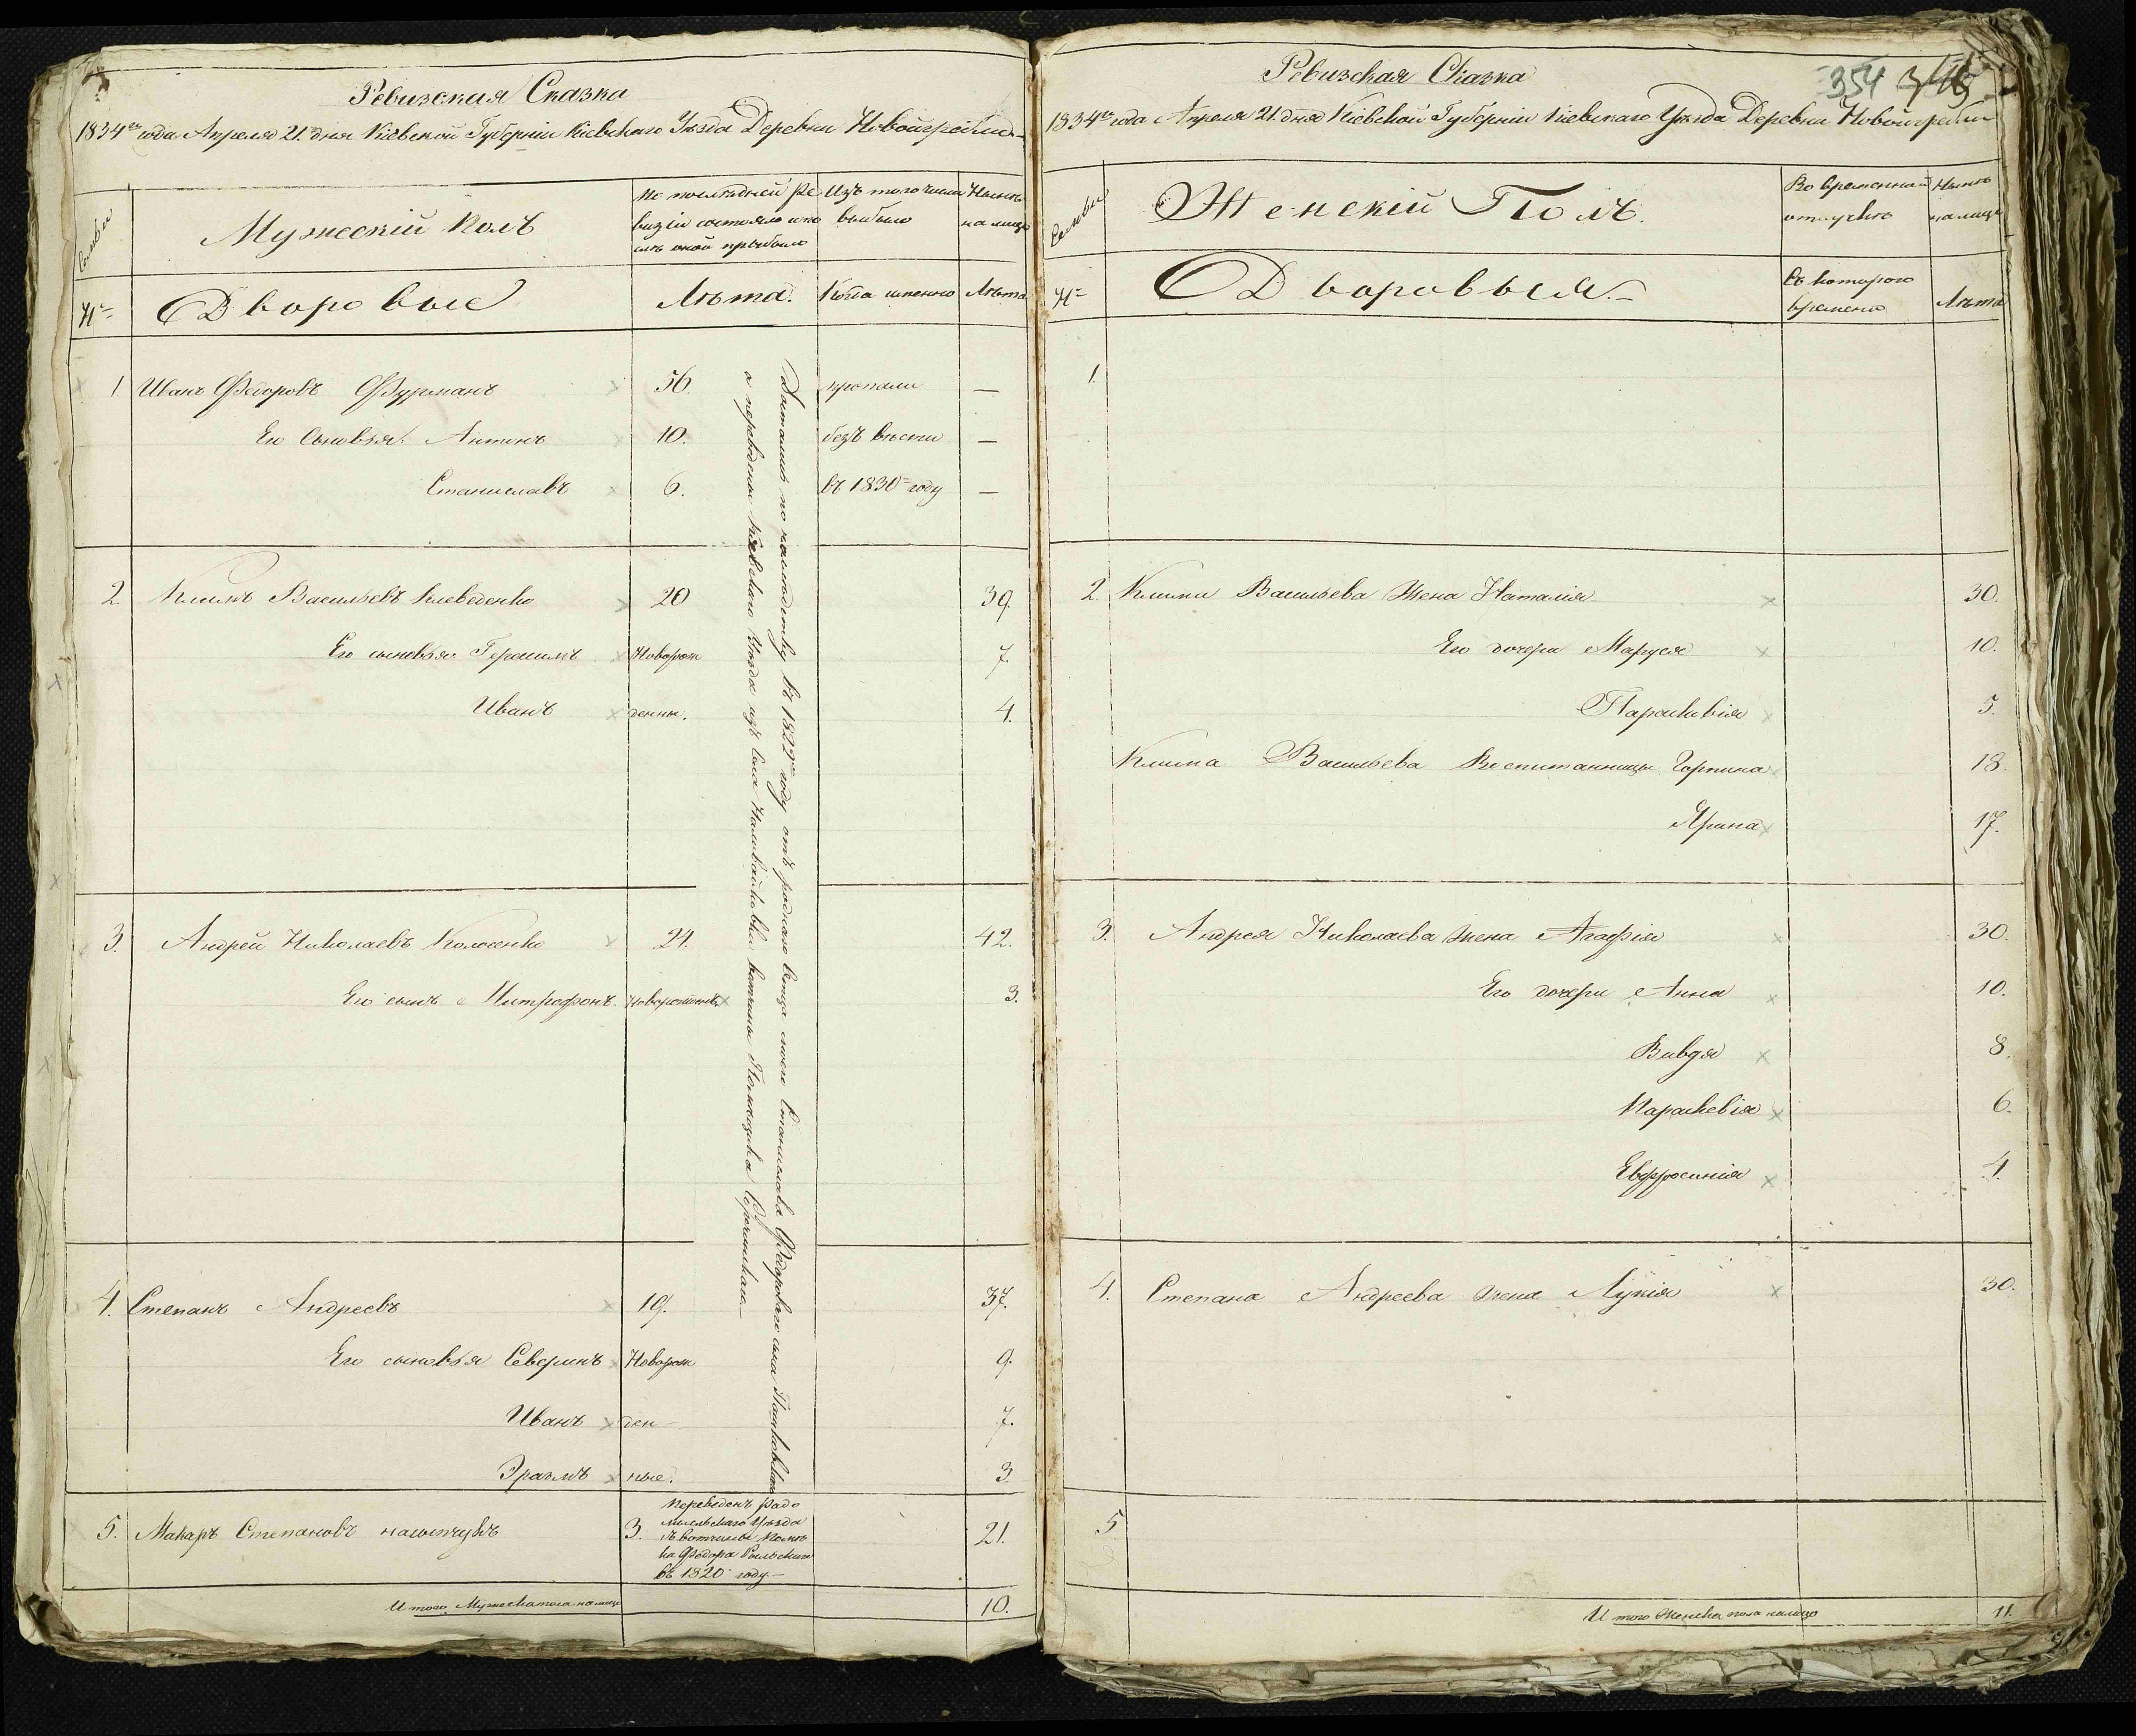 Ревизская Сказка
1834го года Апреля 21. дня Кіевской Губерніи Кіевскаго Уѣзда Деревни Новойгребли
Семьи
Мужескій Полъ
По послѣдней ре
визіи состояло и по
слѣ оной прибыло
Изъ того числа
выбыло
Нынѣ
на лицо
№
Дворовые
Лѣта.
Когда именно
Лѣта
1 Иванъ Федоровъ Фурманъ 56. пропали —
Его Сыновья. Антонъ 10. безъ вѣсти —
Станиславъ 6. въ 1830 году —
2. Климъ Васильевъ 20 39.
Его сыновья Герасимъ Новорож 7.
Иванъ денны. 4.
3. Андрей Николаевъ 24. 42.
Его сынъ Митрофонъ Новорожденъ 3.
4. Степанъ Андреевъ 19. 37.
Его сыновья Северинъ Новорож 9.
Иванъ ден 7.
Эразмъ ные. 3.
5. Макаръ Степановъ 3. 21.
Переведенъ Радо
мысльскаго Уѣзда
съ вотчины
Федора
въ 1820 году —
по наслѣдству въ 1822мъ году отъ роднаго Отца моего Станислава Федороваго сына
а переведены Кіевскаго Уѣзда изъ вотчины Помѣщика
Итого Мужеска пола на лицо 10.
354
Ревизская Сказка
1834го года Апреля 21. дня Кіевской Губерніи Кіевскаго Уѣзда Деревни Новойгребли
Семьи
Женскій Полъ.
Во временной
отлучкѣ
Нынѣ
на лицо
№
Дворовыя.
Съ котораго
времени
Лѣта
1.
2. Клима Васильева Жена Наталія 30.
Его дочери Маруся 10.
Параскевія 5.
Клима Васильева Воспитанницы Горпина 18.
Ярина 17.
3. Андрея Николаева жена Агафія 30.
Его дочери Анна 10.
Вивдя 8.
Параскевія 6.
Евфросинія 4.
4. Степана Андреева жена Лукія 30.
5
Итого Женска пола налицо 11.